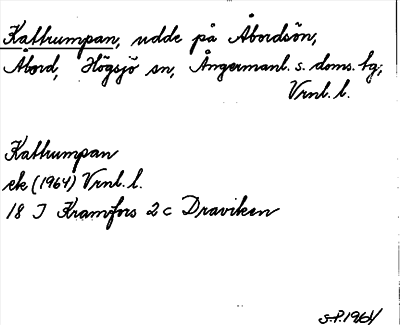 Katthumpan, udde på Åbordsön,
Åbord, Högsjö sn, Ångermanl. s. doms. hg;
Vrnl. l.
Katthumpan
ek (1964) Vrnl. l.
18 I Kramfors 2 c Draviken
S.P. 1964